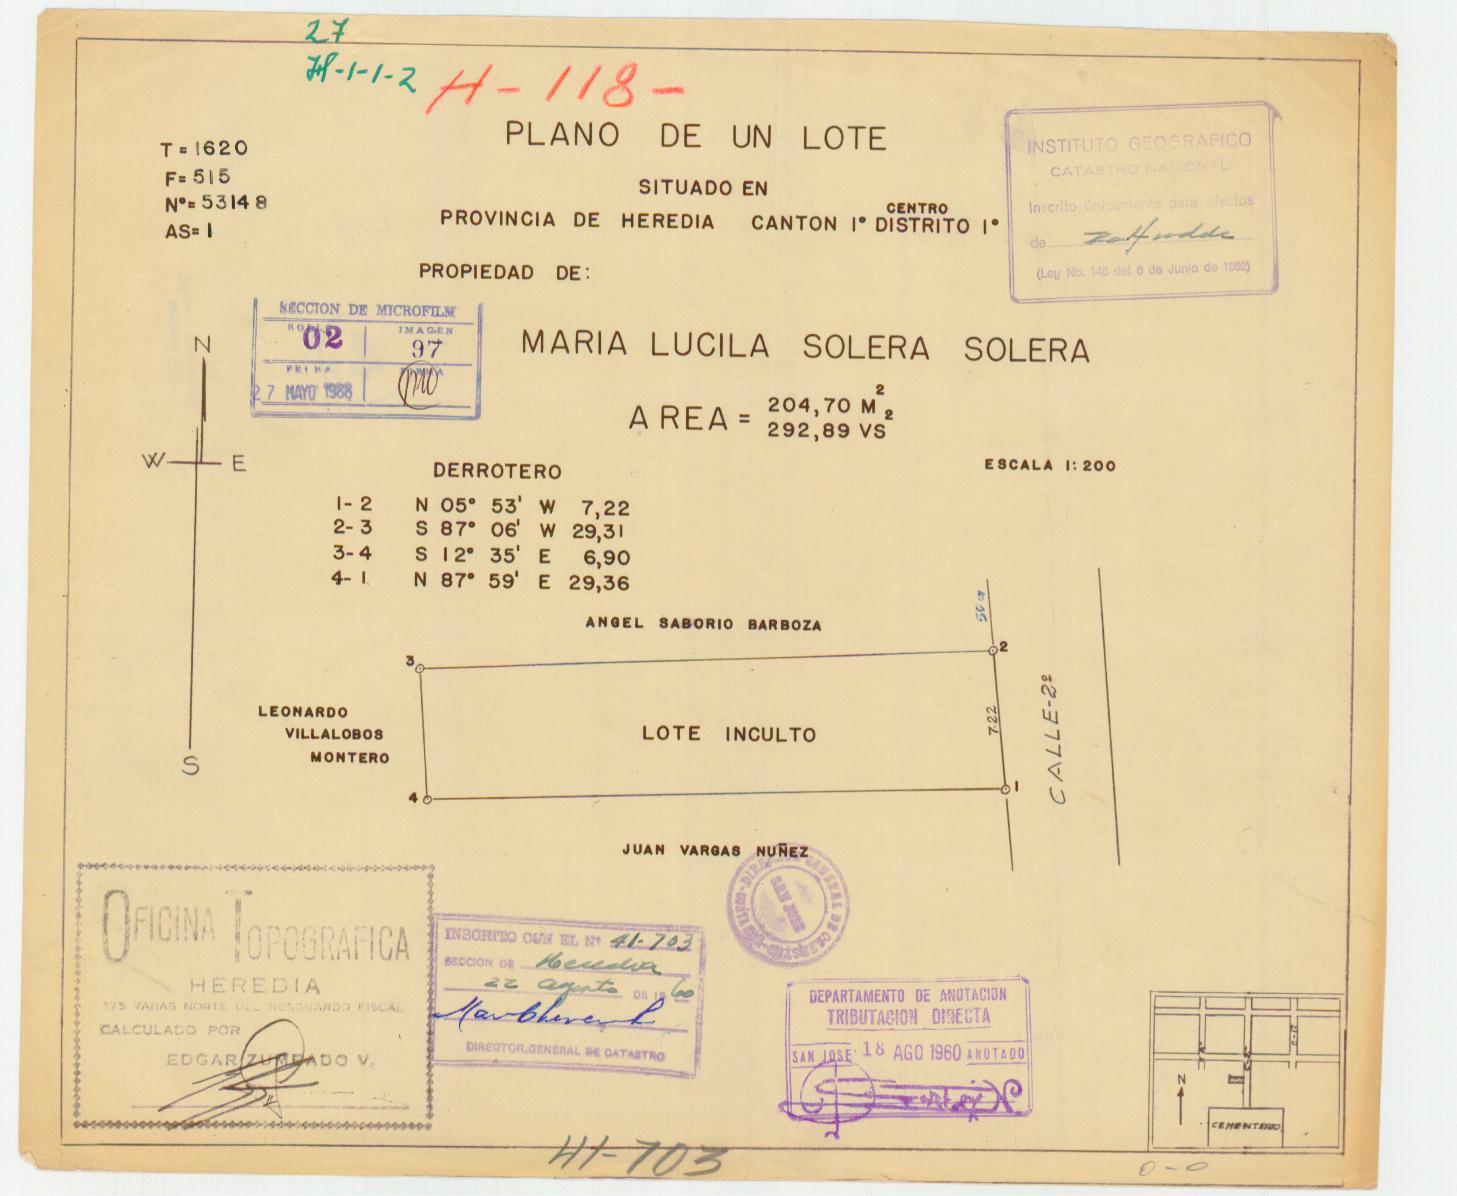 27
H-1-1-2
H-118-
PLANO DE UN LOTE
SITUADO EN
CENTRO
PROVINCIA DE HEREDIA CANTON 1º DISTRITO 1º
T=1620
F=515
Nº=53148
AS=1
INSTITUTO GEOGRAFICO
CATASTRO NACIONAL
Inscrito únicamente para efectos
de
(Ley No. 145 del 6 de Junio de 1952)
PROPIEDAD DE:
SECCION DE MICROFILM
ROLLO IMAGEN
02 97
FECHA FIRMA
27 MAYO 1988
MARIA LUCILA SOLERA SOLERA
AREA = 204,70 M2
292,89 VS2
N
W E
S
ESCALA 1:200
DERROTERO
1-2 N 05° 53' W 7,22
2-3 S 87° 06' W 29,31
3-4 S 12° 35' E 6,90
4-1 N 87° 59' E 29,36
ANGEL SABORIO BARBOZA
50 m
3
2
LEONARDO
VILLALOBOS
MONTERO
LOTE INCULTO
7.22
CALLE-2ª
4
1
JUAN VARGAS NUÑEZ
DIRECCION GENERAL DE CATASTRO
SAN JOSE
OFICINA TOPOGRAFICA
HEREDIA
175 VARAS NORTE DEL RESGUARDO FISCAL
CALCULADO POR
EDGAR ZUMBADO V.
INSCRITO CON EL Nº 41-703
SECCION DE Heredia
22 agosto DE 1960
DIRECTOR GENERAL DE CATASTRO
DEPARTAMENTO DE ANOTACION
TRIBUTACION DIRECTA
SAN JOSE 18 AGO 1960 ANOTADO
N
CEMENTERIO
41-703
0-0